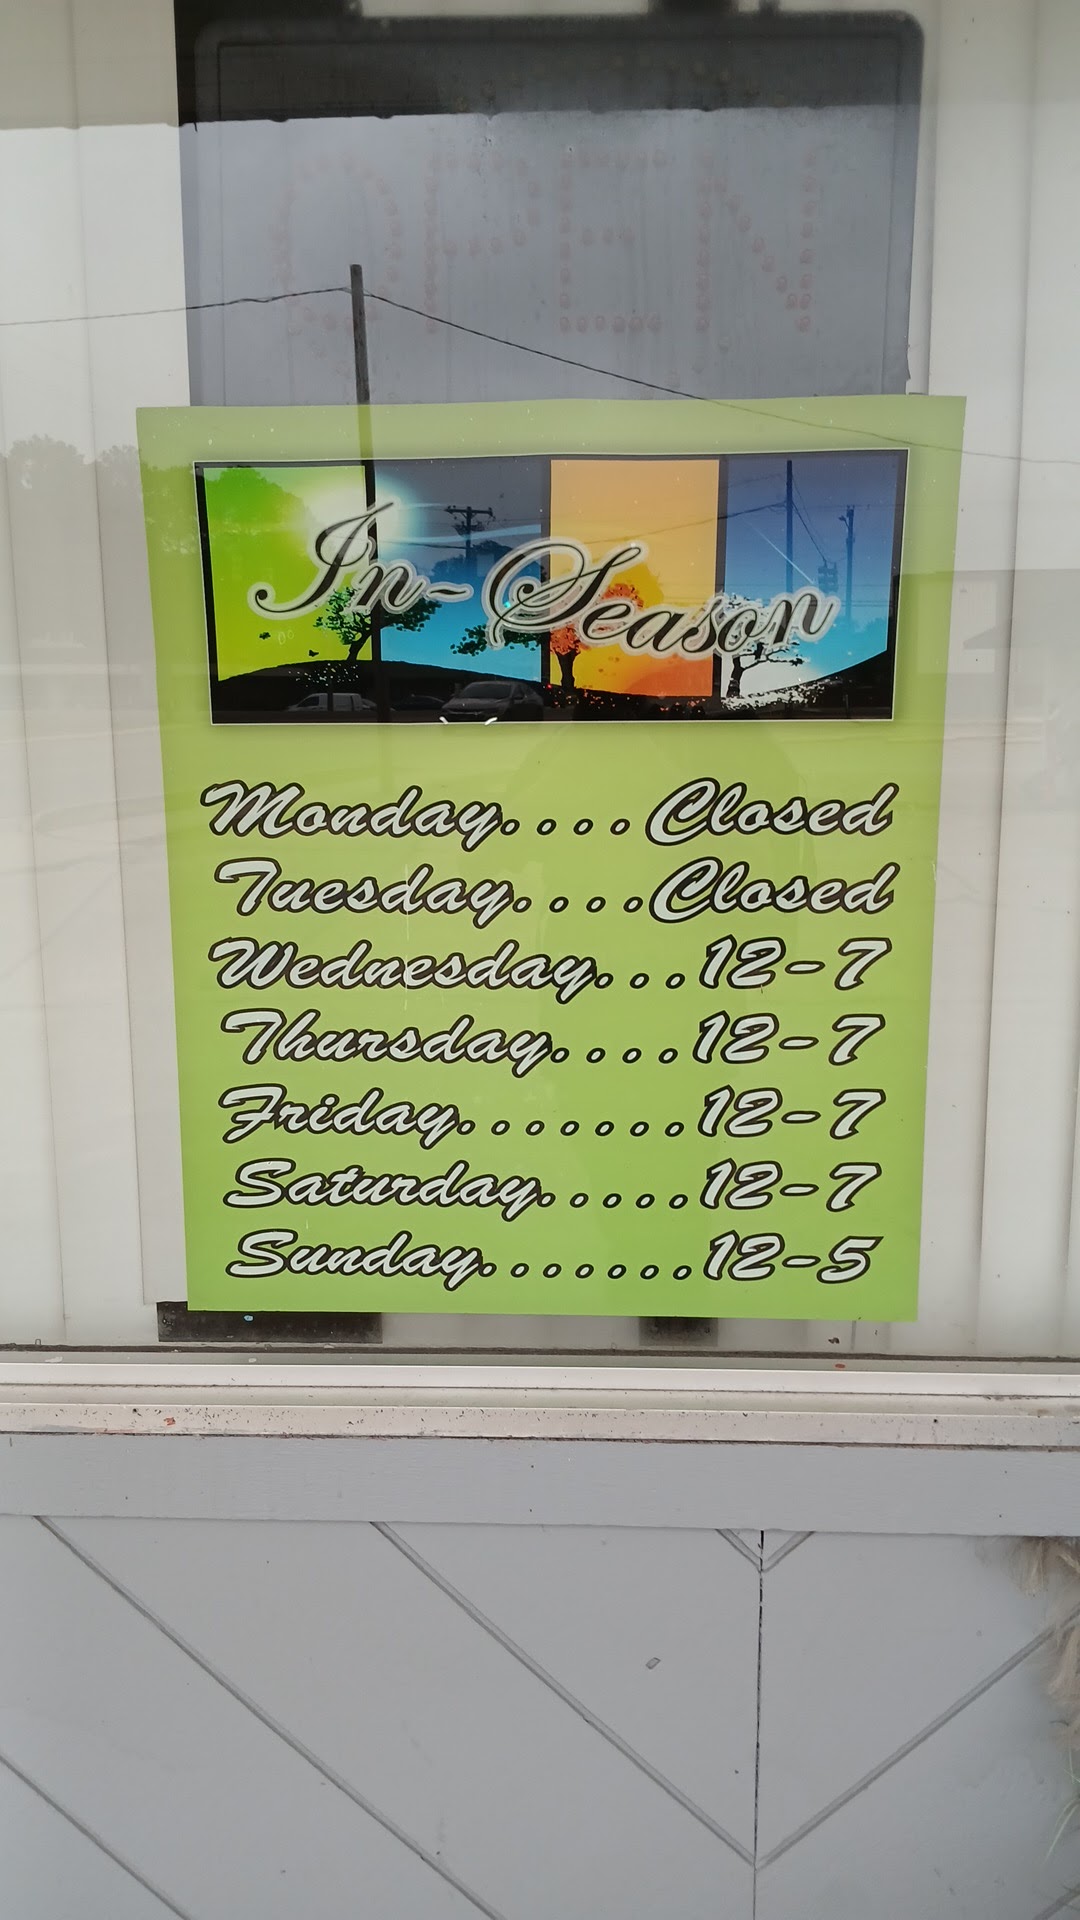 OPEN
In-Season
Monday....Closed
Tuesday....Closed
Wednesday...12-7
Thursday....12-7
Friday.......12-7
Saturday.....12-7
Sunday.......12-5